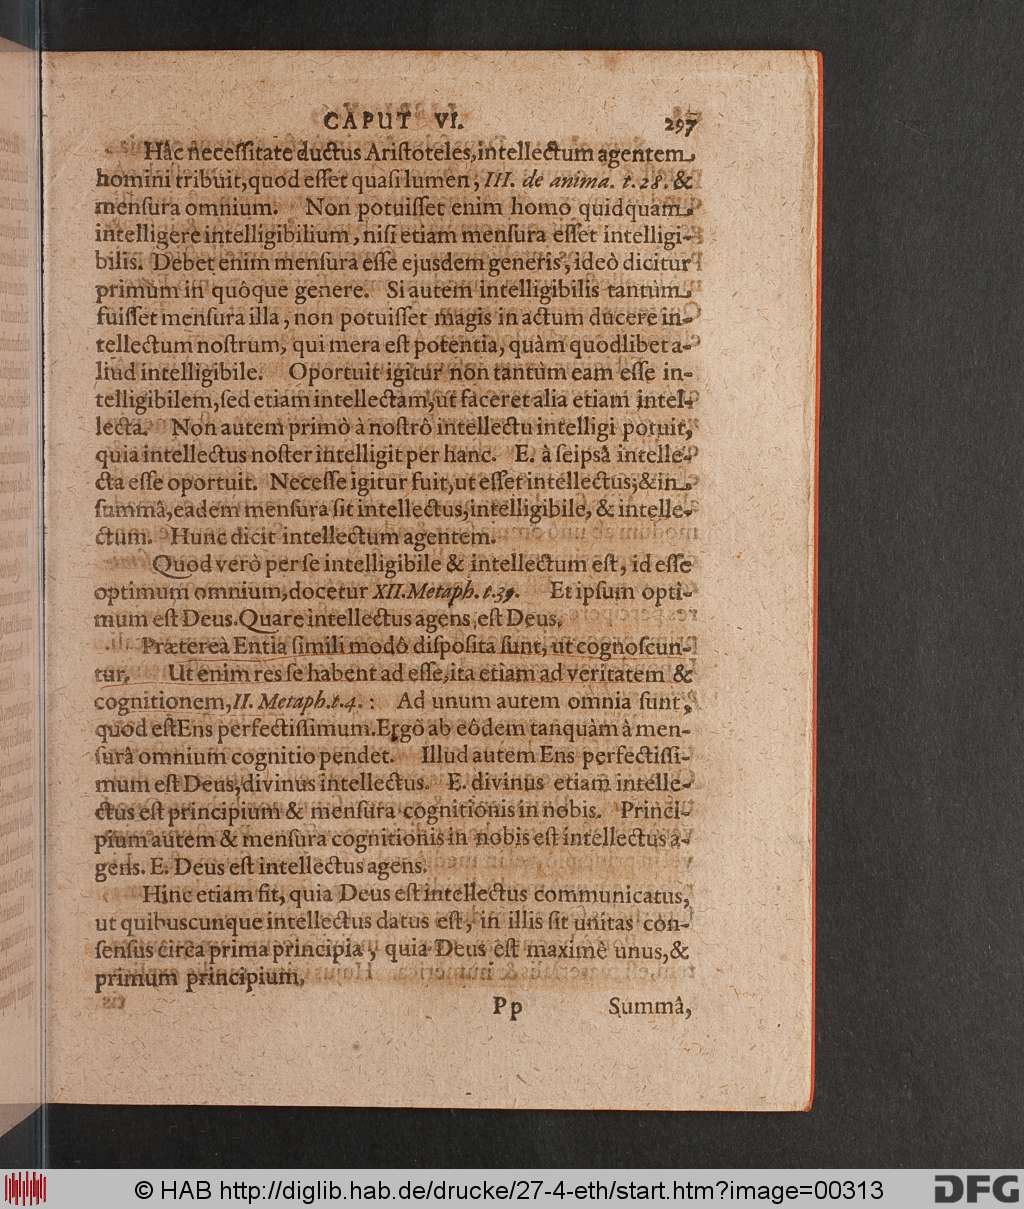 CAPUT VI. 297
Hâc neceſſitate ductus Ariſtoteles, intellectum agentem
homini tribuit, quod eſſet quaſi lumen; III. de anima. t. 28. &
menſura omnium. Non potuiſſet enim homo quidquam
intelligere intelligibilium, niſi etiam menſura eſſet intelligi-
bilis. Debet enim menſura eſſe ejusdem generis, ideò dicitur
primum in quôque genere. Si autem intelligibilis tantùm
fuiſſet menſura illa, non potuiſſet magis in actum ducere in-
tellectum noſtrum, qui mera eſt potentia, quàm quodlibet a-
liud intelligibile. Oportuit igitur non tantùm eam eſſe in-
telligibilem, ſed etiam intellectam, ut faceret alia etiam intel-
lecta. Non autem primò à noſtrô intellectu intelligi potuit,
quia intellectus noſter intelligit per hanc. E. à ſeipsâ intelle-
cta eſſe oportuit. Neceſſe igitur fuit, ut eſſet intellectus; & in
ſummâ, eadem menſura ſit intellectus, intelligibile, & intelle-
ctum. Hunc dicit intellectum agentem.
Quod verò per ſe intelligibile & intellectum eſt, id eſſe
optimum omnium, docetur XII. Metaph. t. 39. Et ipſum opti-
mum eſt Deus. Quare intellectus agens, eſt Deus.
Prætereà Entia ſimili modô diſpoſita ſunt, ut cognoſcun-
tur. Ut enim res ſe habent ad eſſe, ita etiam ad veritatem &
cognitionem, II. Metaph. t. 4. : Ad unum autem omnia ſunt,
quod eſt Ens perfectiſſimum. Ergô ab eôdem tanquàm à men-
ſurâ omnium cognitio pendet. Illud autem Ens perfectiſſi-
mum eſt Deus, divinus intellectus. E. divinus etiam intelle-
ctus eſt principium & menſura cognitionis in nobis. Princi-
pium autem & menſura cognitionis in nobis eſt intellectus a-
gens. E. Deus eſt intellectus agens.
Hinc etiam fit, quia Deus eſt intellectus communicatus,
ut quibuscunque intellectus datus eſt, in illis ſit unitas con-
ſenſus circa prima principia, quia Deus eſt maximè unus, &
primum principium.
Pp Summâ,
© HAB http://diglib.hab.de/drucke/27-4-eth/start.htm?image=00313 DFG